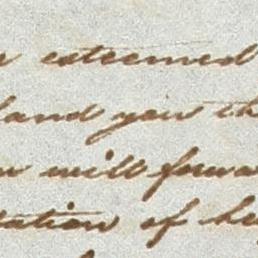 esteemed
land you th
will forwa
tation of he